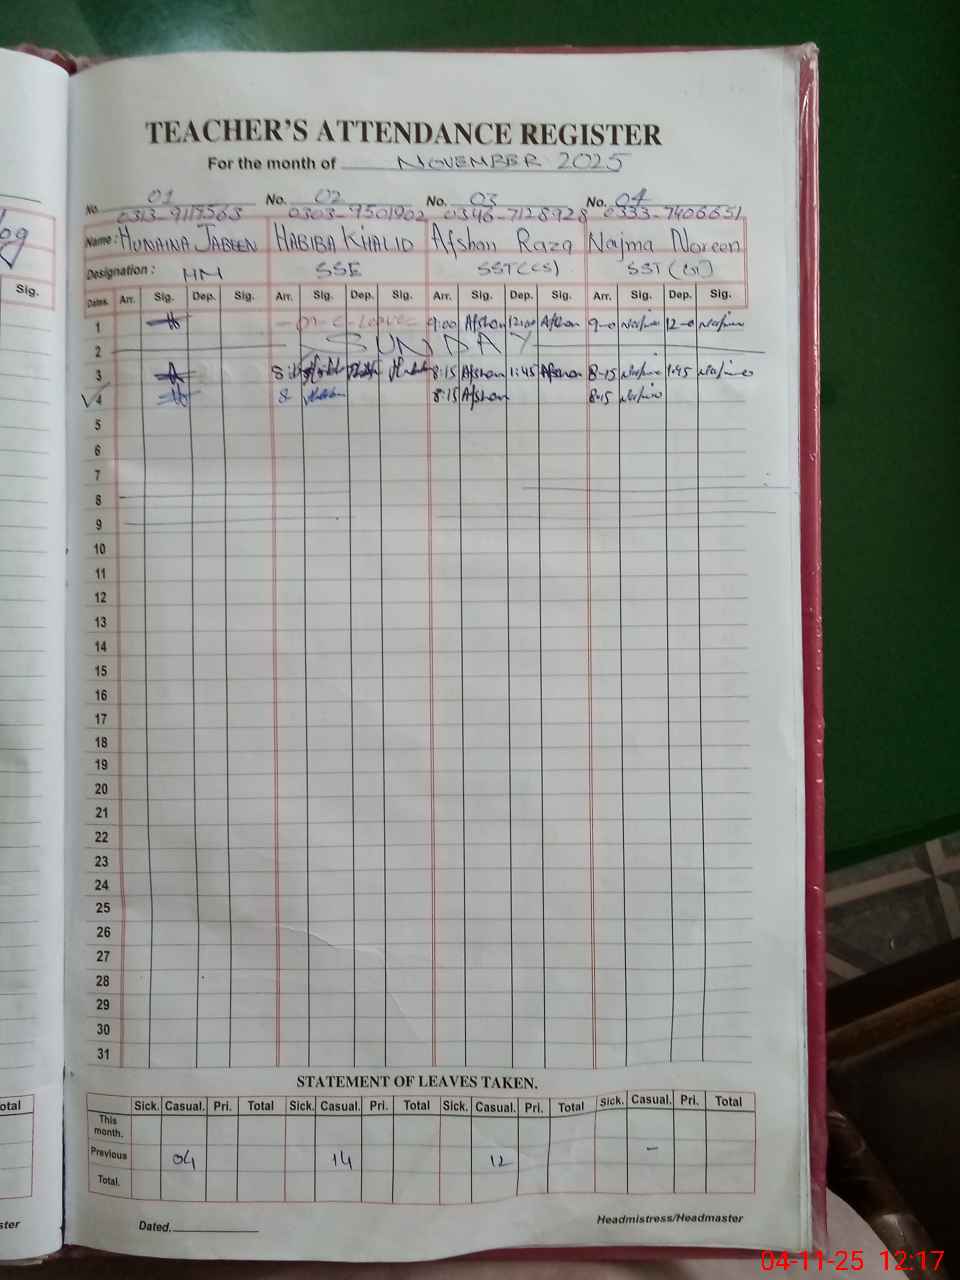 TEACHER'S ATTENDANCE REGISTER
For the month of NOVEMBER 2025
No. 01 No. 02 No. 03 No. 04
0303-9501902 0346-7128928 0333-7406651
Name: HUMAINA JABEEN HABIBA KHALID Afshan Raza Najma Noreen
Designation: HM SSE SST(CS)
Sig.
Dates. Arr. Sig. Dep. Sig. Arr. Sig. Dep. Sig. Arr. Sig. Dep. Sig. Arr. Sig. Dep. Sig.
1 - on - C - Leave 9:00 Afshan 12:00 Afshan 9-0 12-0
2 SUNDAY
3 8:15 Afshan 1:45 Afshan 8-15 1.45
4 8 8:15 Afshan 8.15
5
6
7
8
9
10
11
12
13
14
15
16
17
18
19
20
21
22
23
24
25
26
27
28
29
30
31
STATEMENT OF LEAVES TAKEN.
Sick. Casual. Pri. Total Sick. Casual. Pri. Total Sick. Casual. Pri. Total Sick. Casual. Pri. Total
This month.
Previous 04 14 12 -
Total.
Dated. Headmistress/Headmaster
04-11-25 12:17